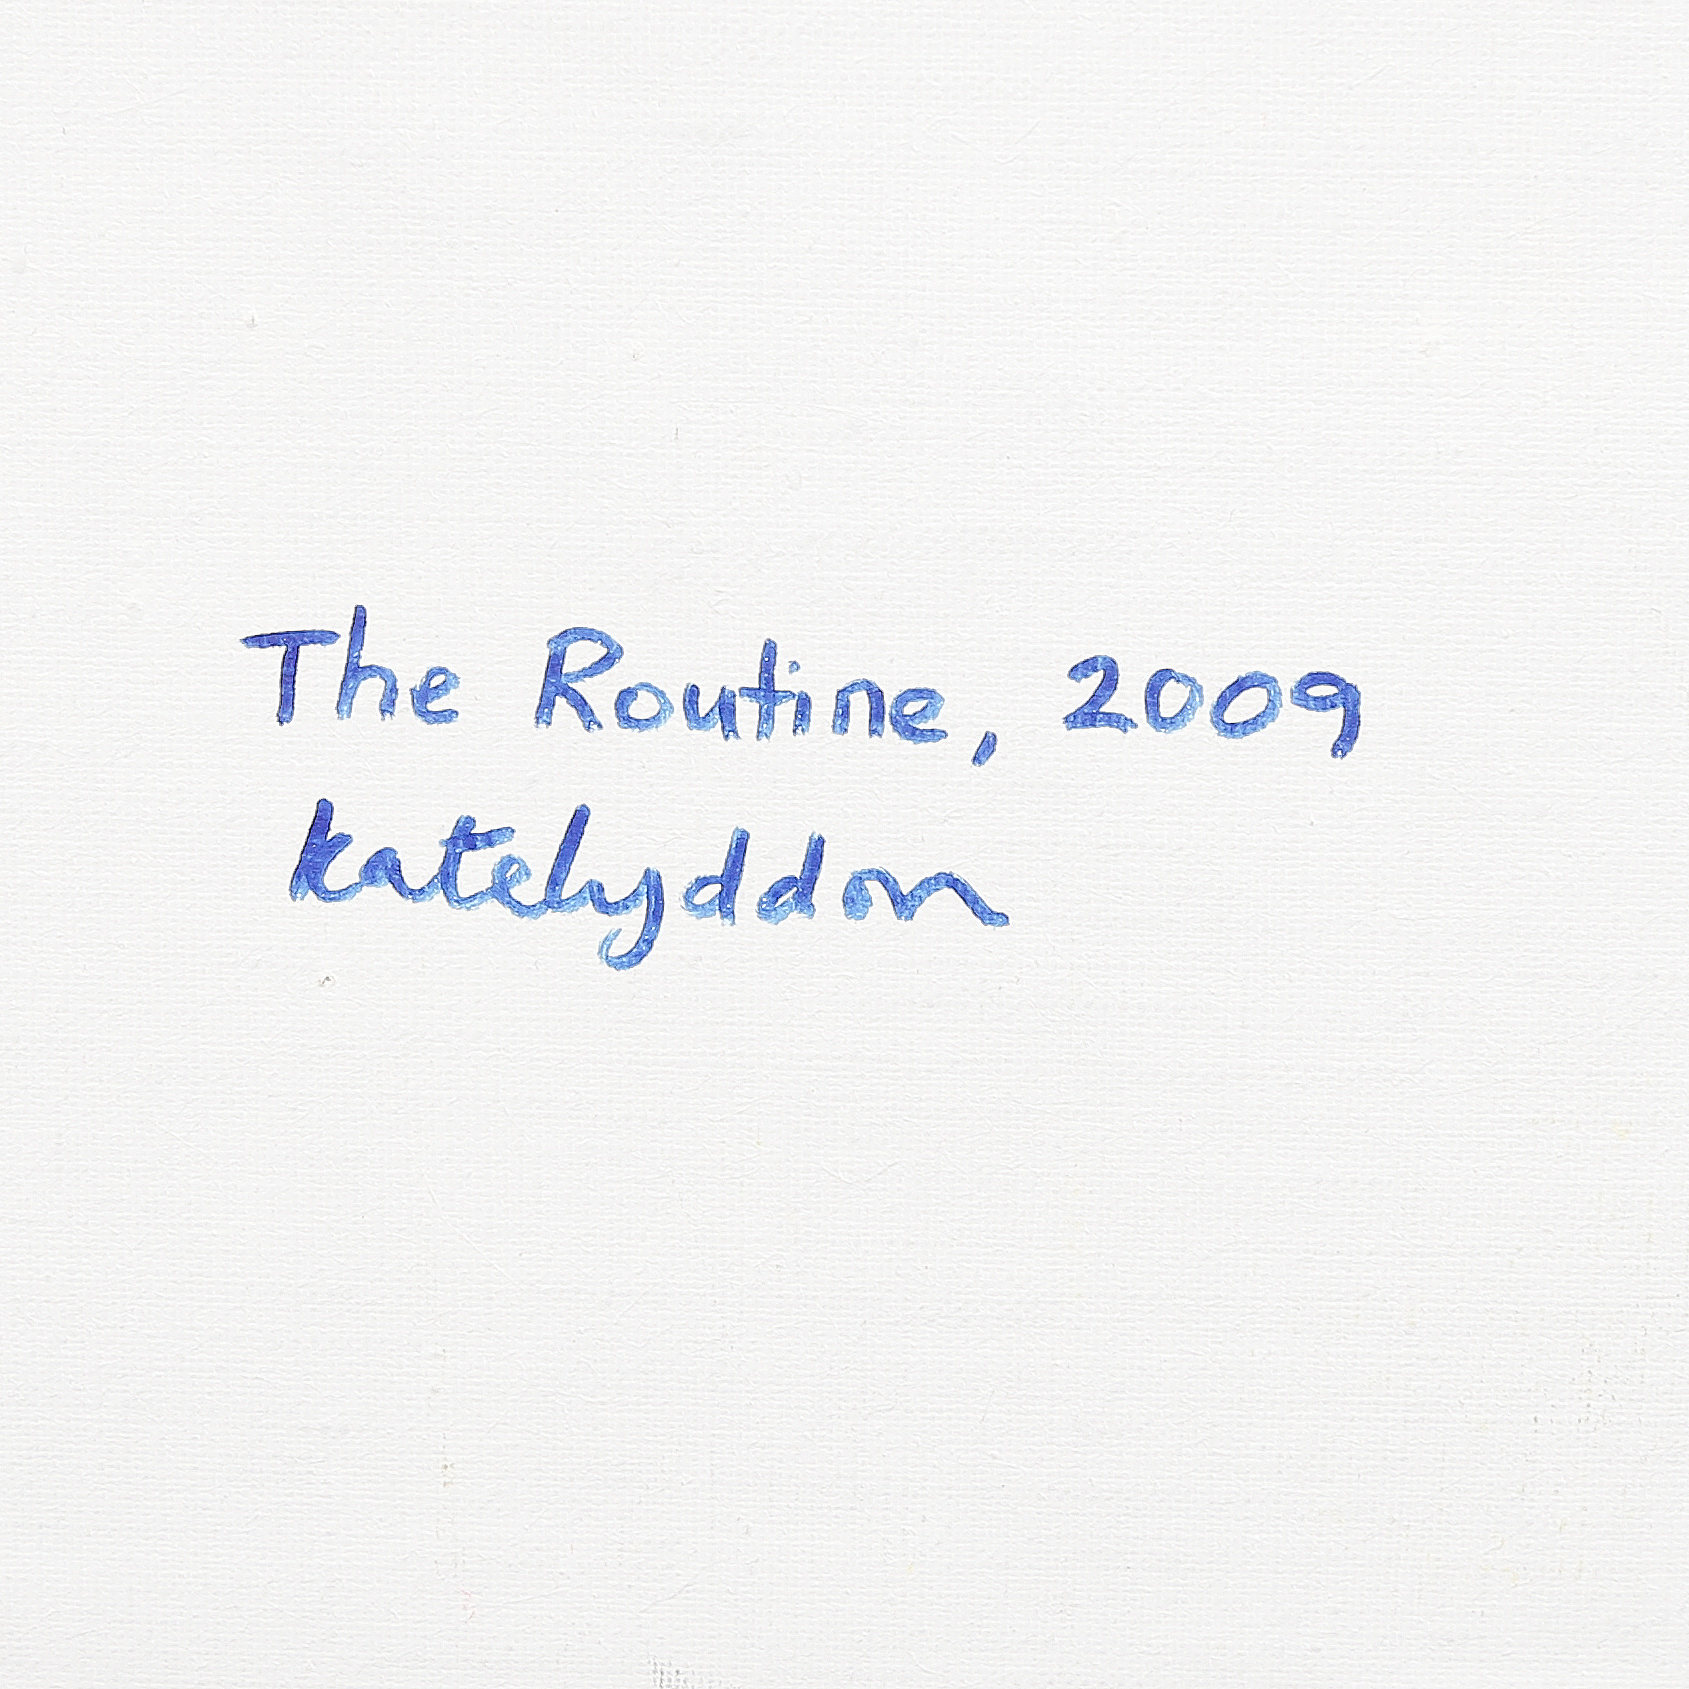 The Routine, 2009
katelyddon